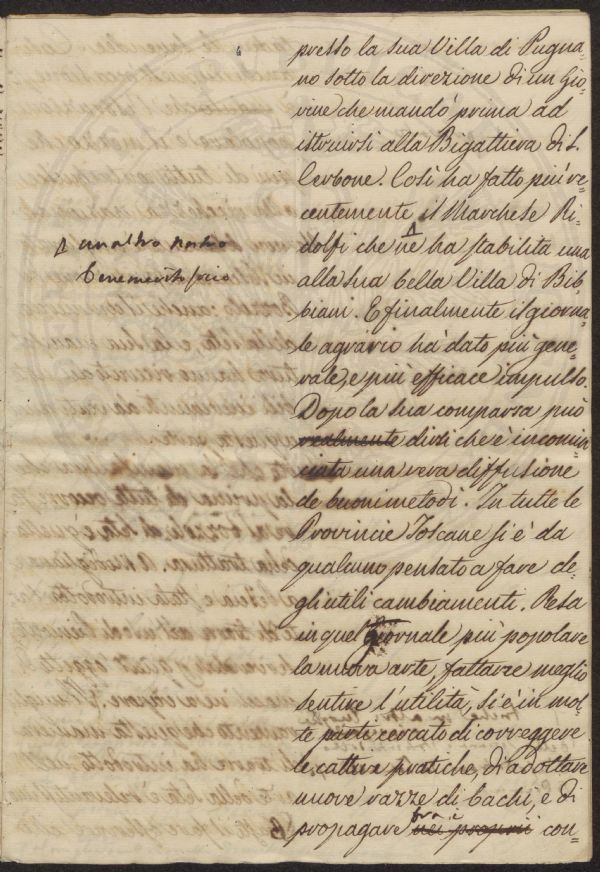 presso la sua Villa di Pugna-
no sotto la direzione di un Gio-
vine che mandò prima ad
istruirsi alla Bigattiera di S.
Cerbone. Così ha fatto più re-
centemente il Marchese Ri-
Δ un altro nostro
benemerito socio
dolfi che Δ ne ha stabilita una
alla sua bella Villa di Bib-
biani. E finalmente il giorna-
le agrario ha dato più gene-
rale, e più efficace impulso.
Dopo la sua comparsa può
realmente dirsi che è incomin-
ciata una vera diffusione
de buoni metodi. In tutte le
Provincie Toscane si è da
qualcuno pensato a fare de-
gli utili cambiamenti. Resa
in quel Giornale più popolare
la nuova arte, fattane meglio
sentire l'utilità, si è in mol-
te parti cercato di correggere
le cattive pratiche, di adottare
nuove razze di bachi, e di
fra i
propagare nei proprii con-